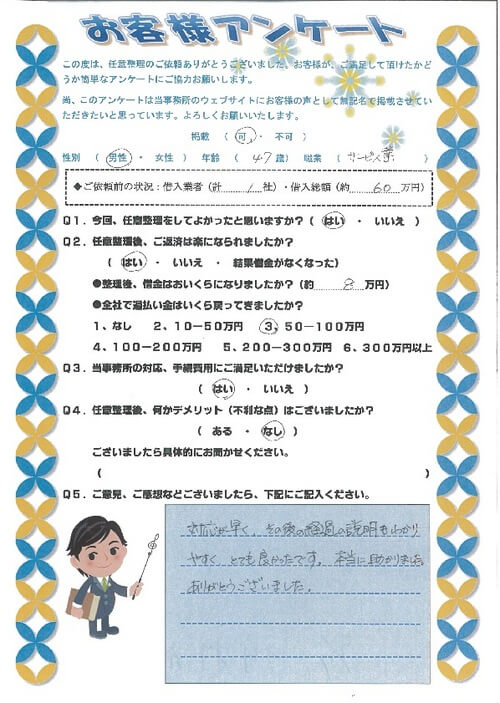 お客様アンケート
この度は、任意整理のご依頼ありがとうございました。お客様が、ご満足して頂けたかど
うか簡単なアンケートにご協力お願いします。
尚、このアンケートは当事務所のウェブサイトにお客様の声として無記名で掲載させてい
ただきたいと思っています。よろしくお願いいたします。
掲載 ( 可 ・ 不可 )
性別 ( 男性 ・ 女性 ) 年齢 ( 47 歳) 職業 ( サービス業 )
◆ご依頼前の状況:借入業者(計 1 社)・借入総額(約 60 万円)
Q1.今回、任意整理をしてよかったと思いますか?( はい ・ いいえ )
Q2.任意整理後、ご返済は楽になられましたか?
( はい ・ いいえ ・ 結果借金がなくなった)
●整理後、借金はおいくらになりましたか?(約 8 万円)
●全社で過払い金はいくら戻ってきますか?
1、なし 2、10-50万円 3、50-100万円
4、100-200万円 5、200-300万円 6、300万円以上
Q3.当事務所の対応、手続費用にご満足いただけましたか?
( はい ・ いいえ )
Q4.任意整理後、何かデメリット(不利な点)はございましたか?
( ある ・ なし )
ございましたら具体的にお聞かせください。
( )
Q5.ご意見、ご感想などございましたら、下記にご記入ください。
対応が早く、その後の経過の説明もわかり
やすく とても良かったです。本当に助かりました
ありがとうございました。